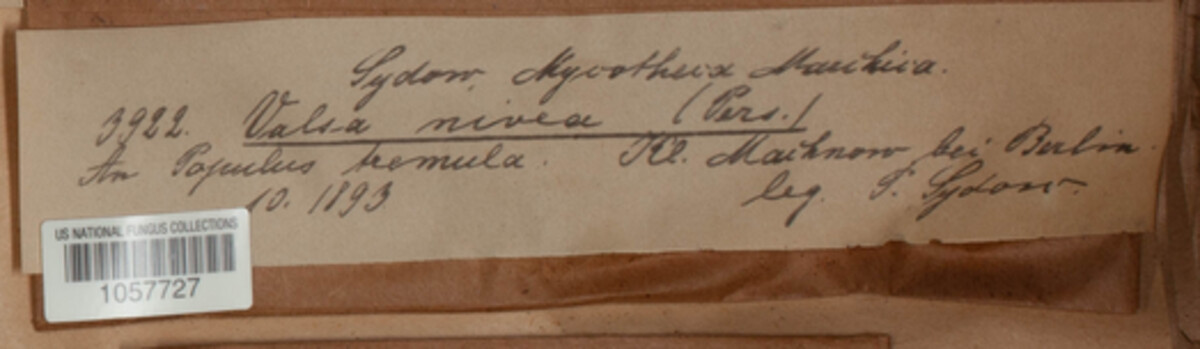 Sydow, Mycotheca Marchica.
3922. Valsa nivea (Pers.)
An Populus tremula. Kl. Machnow bei Berlin.
10. 1893 leg. P. Sydow.
US NATIONAL FUNGUS COLLECTIONS
1057727